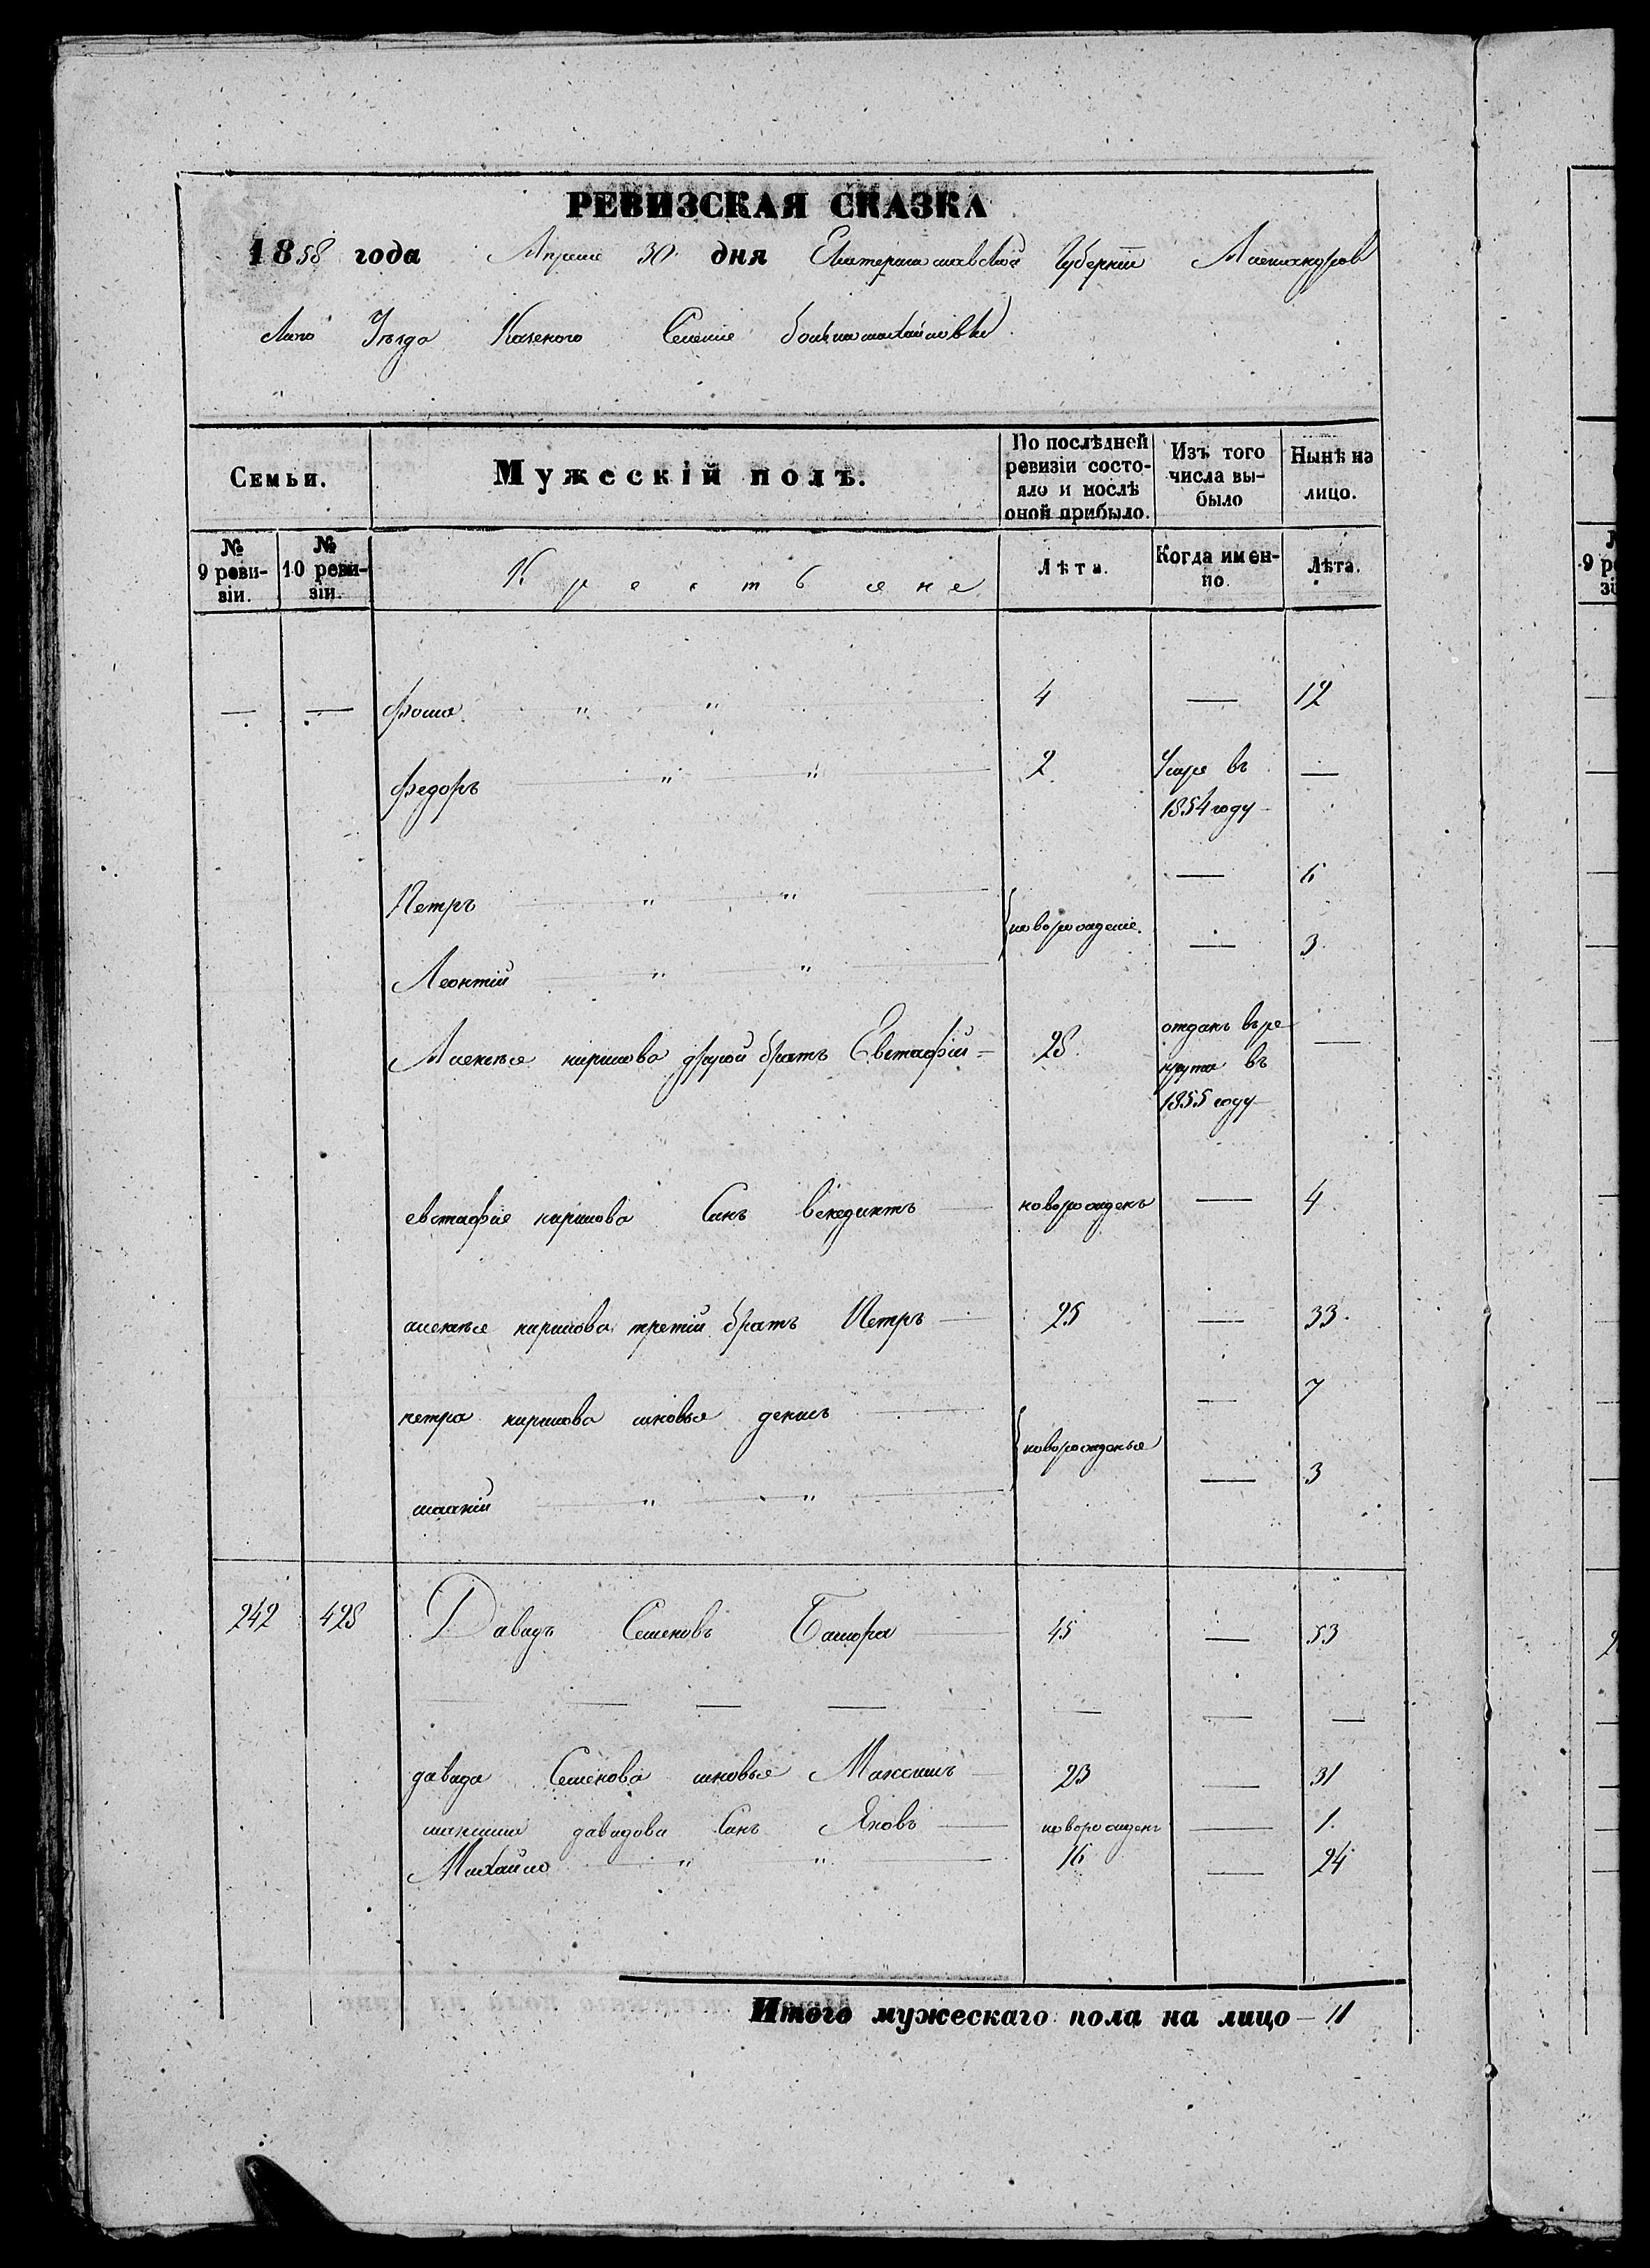 РЕВИЗСКАЯ СКАЗКА
1858 года Апреля 30 дня Екатеринославской Губернiи Александров
скаго Уѣзда Казеного Селенiе большамихайловки
Семьи.
Мужескій полъ.
По послѣдней ревизіи состояло и послѣ оной прибыло.
Изъ того числа выбыло
Нынѣ на лицо.
№ 9 ревизіи.
№ 10 ревизіи.
Крестьяне
Лѣта.
Когда именно.
Лѣта.
— — фома " " 4 — 12
федоръ " " 2 Умре въ —
1854 году
Петръ " " — 6
новорожденіе.
Леонтій " " — 3
Алексѣя кирилова другой братъ Евстафій 28 отданъ въ ре —
круты въ
1855 году
евстафия кирилова Синъ венедиктъ новорожденъ — 4
алексѣя кирилова третій братъ Петръ 25 — 33
петра кирилова синовья денисъ — 7
новорожденыя
" " — 3
242 428 Давидъ Семеновъ 45 — 53
— — — — — — —
давида Семенова синовья Максимъ 23 — 31
максима давидова Синъ Яковъ новорожденъ — 1
Михайло " " 16 — 24
Итого мужескаго пола на лицо — 11
9 ре